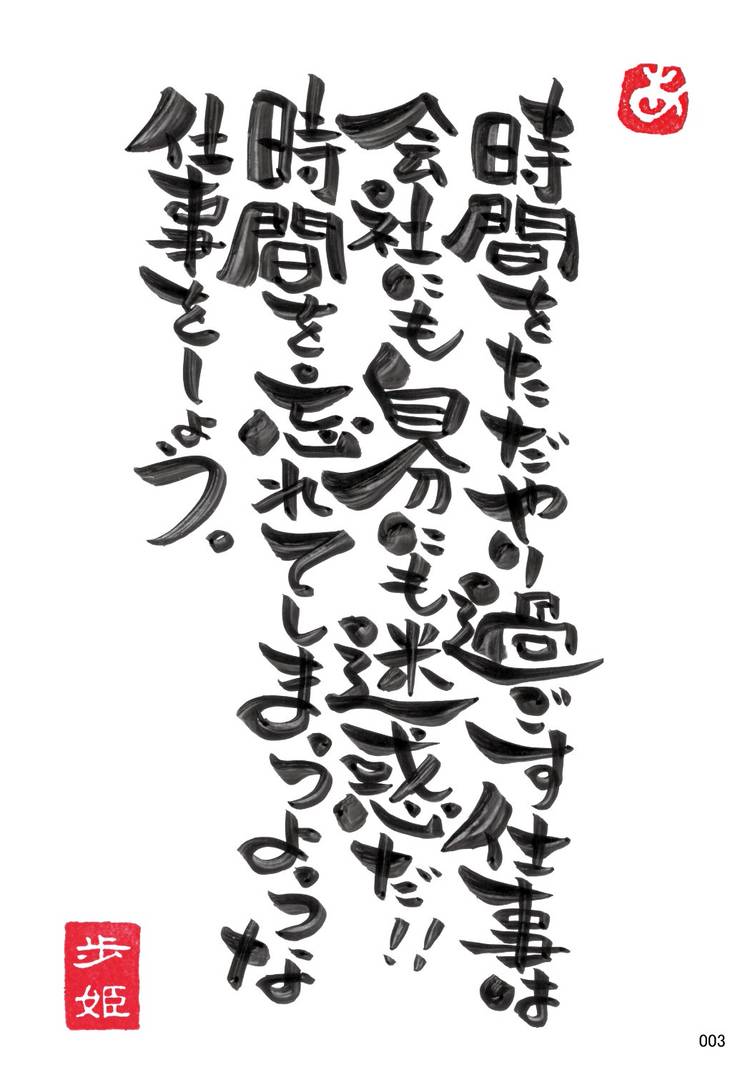 あ
時間をただただやり過ごす仕事は
会社にも自分にも迷惑だ!!
時間を忘れてしまうような
仕事をしよう。
歩
姫
003